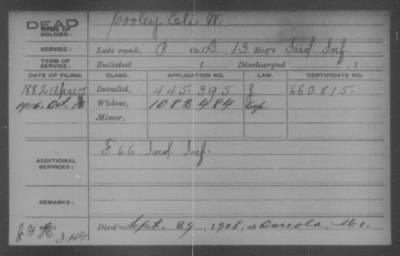 DEAD
NAME OF SOLDIER: Cooley Eli W.
SERVICE: Late rank, P Co. D, 13 Reg't Ind. Inf.
TERM OF SERVICE: Enlisted 1 Discharged , 1
DATE OF FILING. CLASS. APPLICATION NO. LAW. CERTIFICATE NO.
1882 Apr Invalid, 445.395 J 660815.
1916. Oct. Widow, 1082484
Minor,
ADDITIONAL SERVICES: F 66 Ind. Inf.
REMARKS:
Died Sept. 29, 1908, at Osceola, Mo.